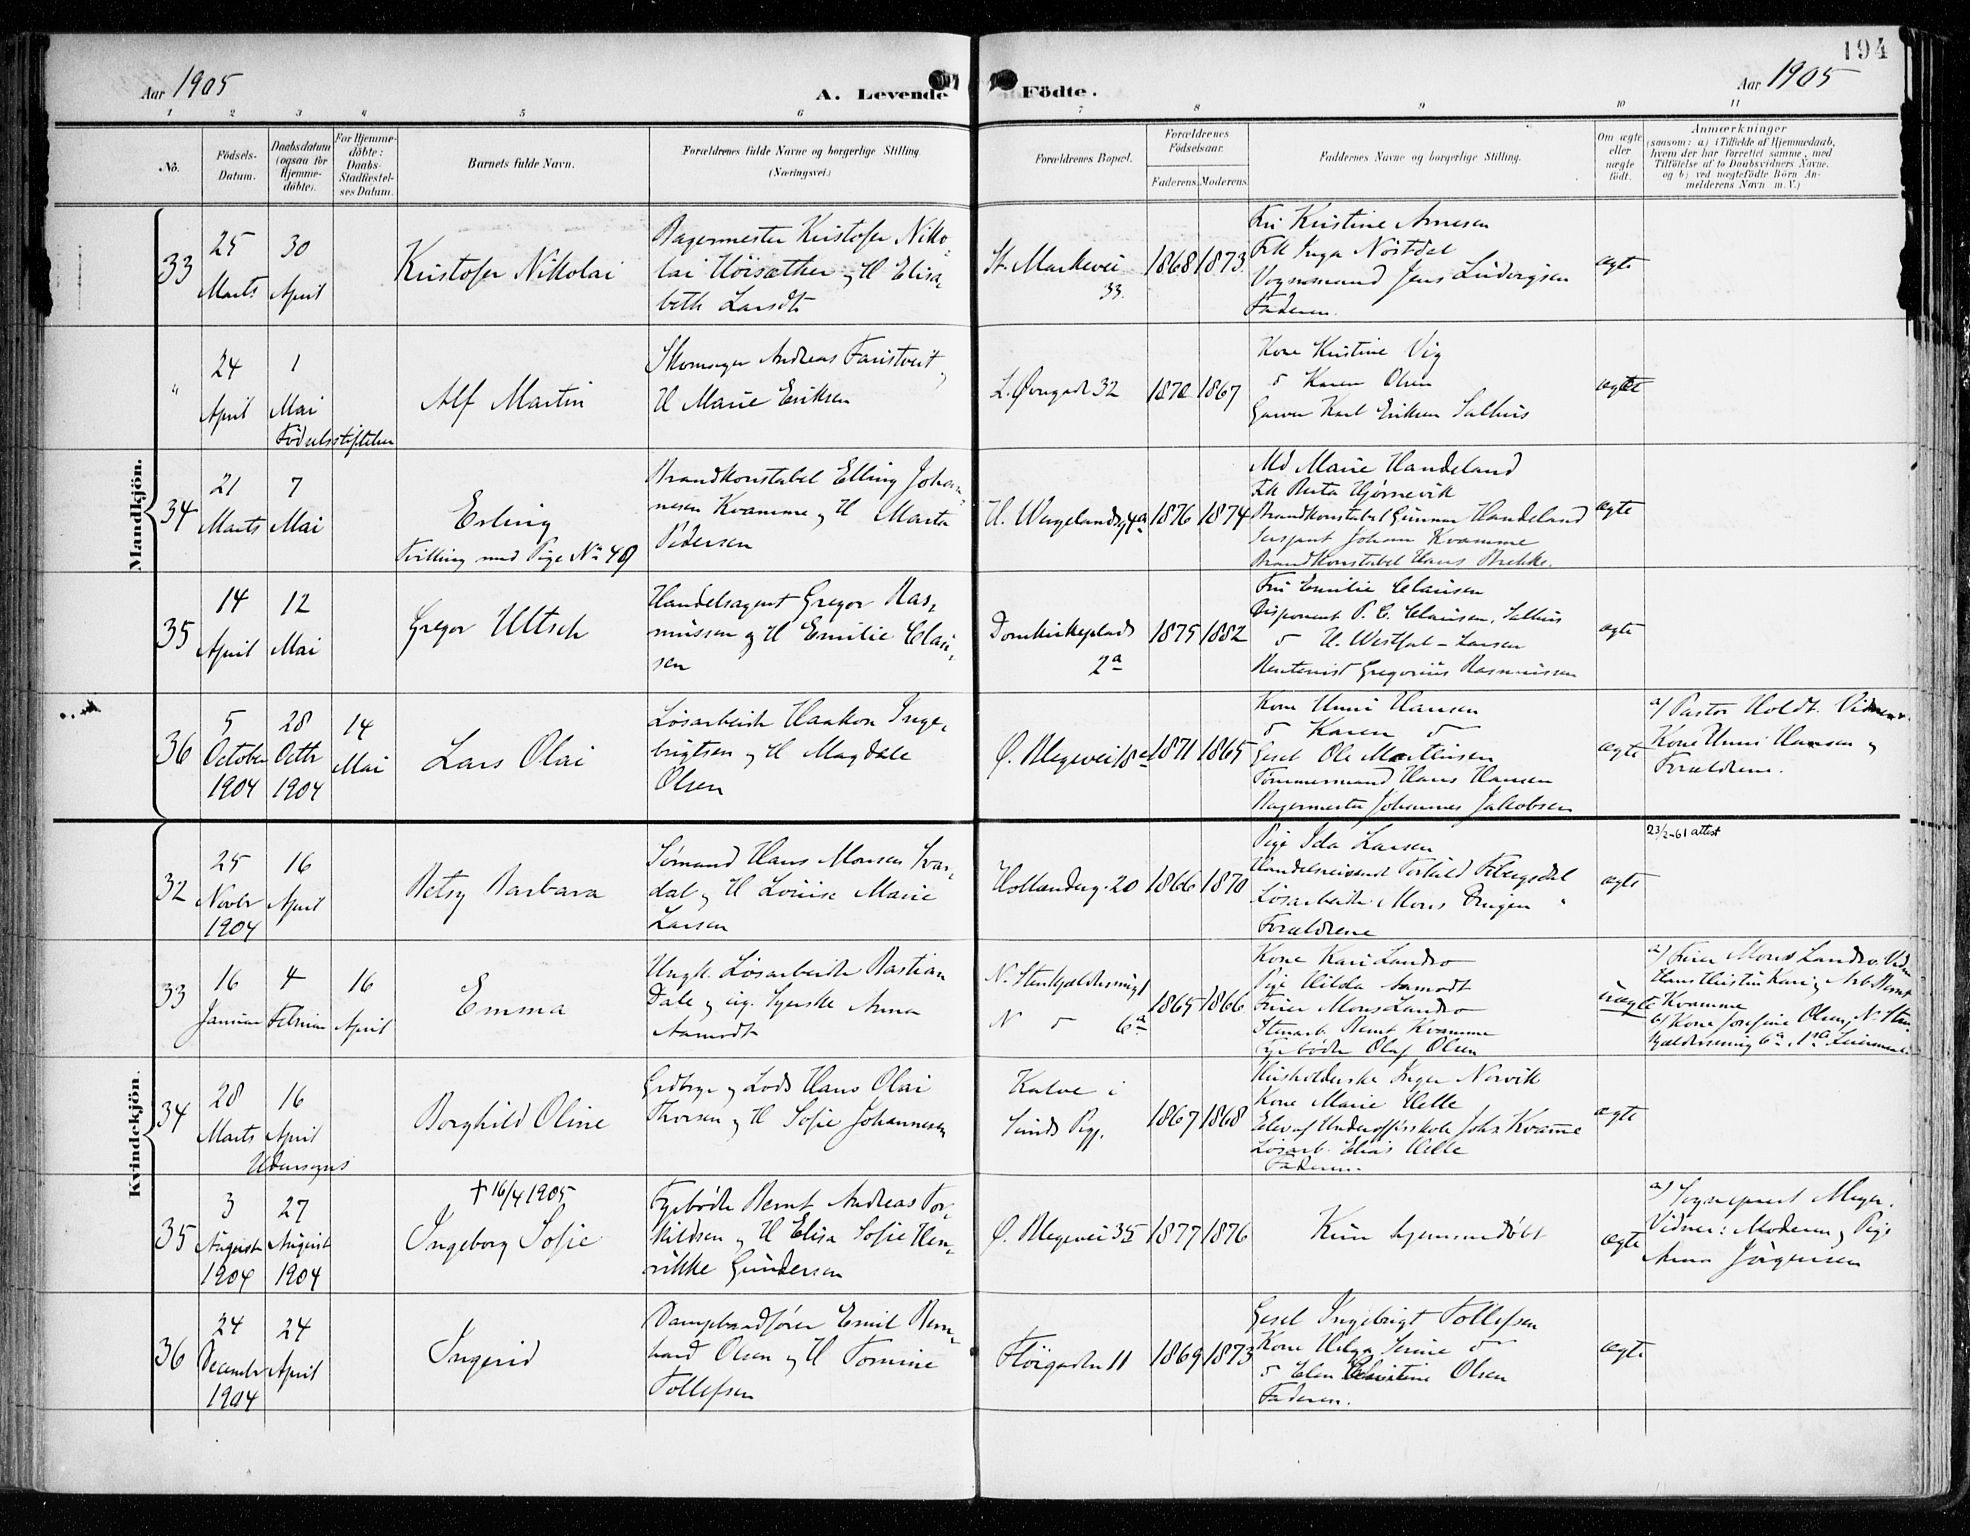 194
Aar 1905
A. Levende Födte.
Aar 1905
1 2 3 4 5 6 7 8 9 10 11
No.
Födsels-
Datum.
Daabsdatum
(ogsaa for
Hjemme-
döbte).
For Hjemme-
döbte:
Daabs-
Stadfæstel-
ses Datum.
Barnets fulde Navn.
Forældrenes fulde Navne og borgerlige Stilling.
(Næringsvei.)
Forældrenes Bopæl.
Forældrenes
Födselsaar.
Faderens Moderens
Faddernes Navne og borgerlige Stilling.
Om ægte
eller
uægte
født.
Anmærkninger
(saasom: a) i Tilfælde af Hjemmedaab,
hvem der har forrettet samme, med
Tilföielse af to Daabsvidners Navne.
og b) ved uægtefödte Börn An-
melderens Navn m. V.)
Mandkjön.
33
25
Marts
30
April
Kristofer Nikolai
Bagermester Kristofer Niko-
lai Høisæther og H Elisa-
beth Larsdtr
St. Markevei
33.
1868 1873
Fru Kristine Arnesen
Frk Inga Nøstdal
Vognmand Jens Ludvigsen
Faderen.
ægte
"
24
April
1
Mai
Fødselsstiftelsen
Alf Martin
Skomager Andreas Faristveit og
H Marie Eriksen
L. Øvregade 32
1872 1867
Kone Kristine Vig
" Karen Olsen
Garver Karl Eriksen Salhus
ægte
34
21
Marts
7
Mai
Erling
Tvilling med Pige No 40
Brandkonstabel Elling Johan-
nesen Kvamme og H Marta
Pedersen
H. Wergelandsg 4a
1876 1874
Md Marie Handeland
Frk Berta Hjørnevik
Brandkonstabel Gunnar Handeland
Sersjant Johan Kvamme
Brandkonstabel Hans Brekke.
ægte
35
14
April
12
Mai
Gregor Ultsch
Handelsagent Gregor Ras-
mussen og H Emilie Clau-
sen
Domkirkeplads
2a
1875 1882
Fru Emilie Clausen
Disponent P. C. Clausen, Salhus
" H. Westfal-Larsen
Rentenist Gregorius Rasmussen
ægte
36
5
October
1904
28
Octbr
1904
14
Mai
Lars Olai
Løsarbeider Haakon Inge-
brigtsen og H Magdale
Olsen
Ø. Blegevei 18a
1871 1865
Kone Unni Hansen
" Karen "
Gesel Ole Martinsen
Tømmermand Hans Hansen
Bagermester Johannes Jakobsen
ægte
a) Pastor Holdt. Vidner:
Kone Unni Hansen og
Forældrene.
Kvindekjön.
32
25
Novbr
1904
16
April
Betsy Barbara
Sømand Hans Monsen Svar-
dal og H Louise Marie
Larsen
Hollenderg. 20
1866 1870
Pige Ida Larsen
Handelsreisende
Løsarbeider Mons
Forældrene
ægte
23/2-61 attest
33
16
Januar
4
Februar
16
April
Emma
Ungk. Løsarbeider Bastian
Dale og ug. Syerske Anna
Aamodt
N. Stenkjeldersmug
N " 6a
1865 1866
Kone Kari Landro
Pige Hilda Aamodt
Feier Mons Landro
Stenarb. Bernt Kvamme
Fyrbøder Olaf Olsen
uægte
a) Feier Mons Landro. Vidn.
Hans Hustru Kari og Arb Bernt
Kvamme
b) Kone Josefine Olsen, N. Sten-
kjeldersmug 6a
34
28
Marts
16
April
Udensogns
Borghild Oline
Grdbrgr og Lods Hans Olai
Thorsen og H Sofie Johannesen
Kalve i
Sunds Pgj.
1867 1868
Husholderske Inger Norvik
Kone Marie Helle
Elev af Underoffisskole John Kvamme
Løsarb. Elias Helle
Faderen.
ægte
35
3
August
1904
27
August
1904
† 16/4 1905
Ingeborg Sofie
Fyrbøder Bernt Andreas Tor-
kildsen og H Elisa Sofie Hen-
rikke Gundersen
Ø. Blegevei 35
1877 1876
Kun hjemmedøbt
ægte
a) Sogneprest Meyer.
Vidner: Moderen og Pige
Anna Jörgensen
36
24
December
1904
24
April
Ingerid
Dampbaadfører Emil Bern-
hard Olsen og H Tomine
Tollefsen
Fløigaden 11
1869 1873
Gesel Ingebrigt Tollefsen
Kone Helga Serine "
" Elen Christine Olsen
Faderen.
ægte